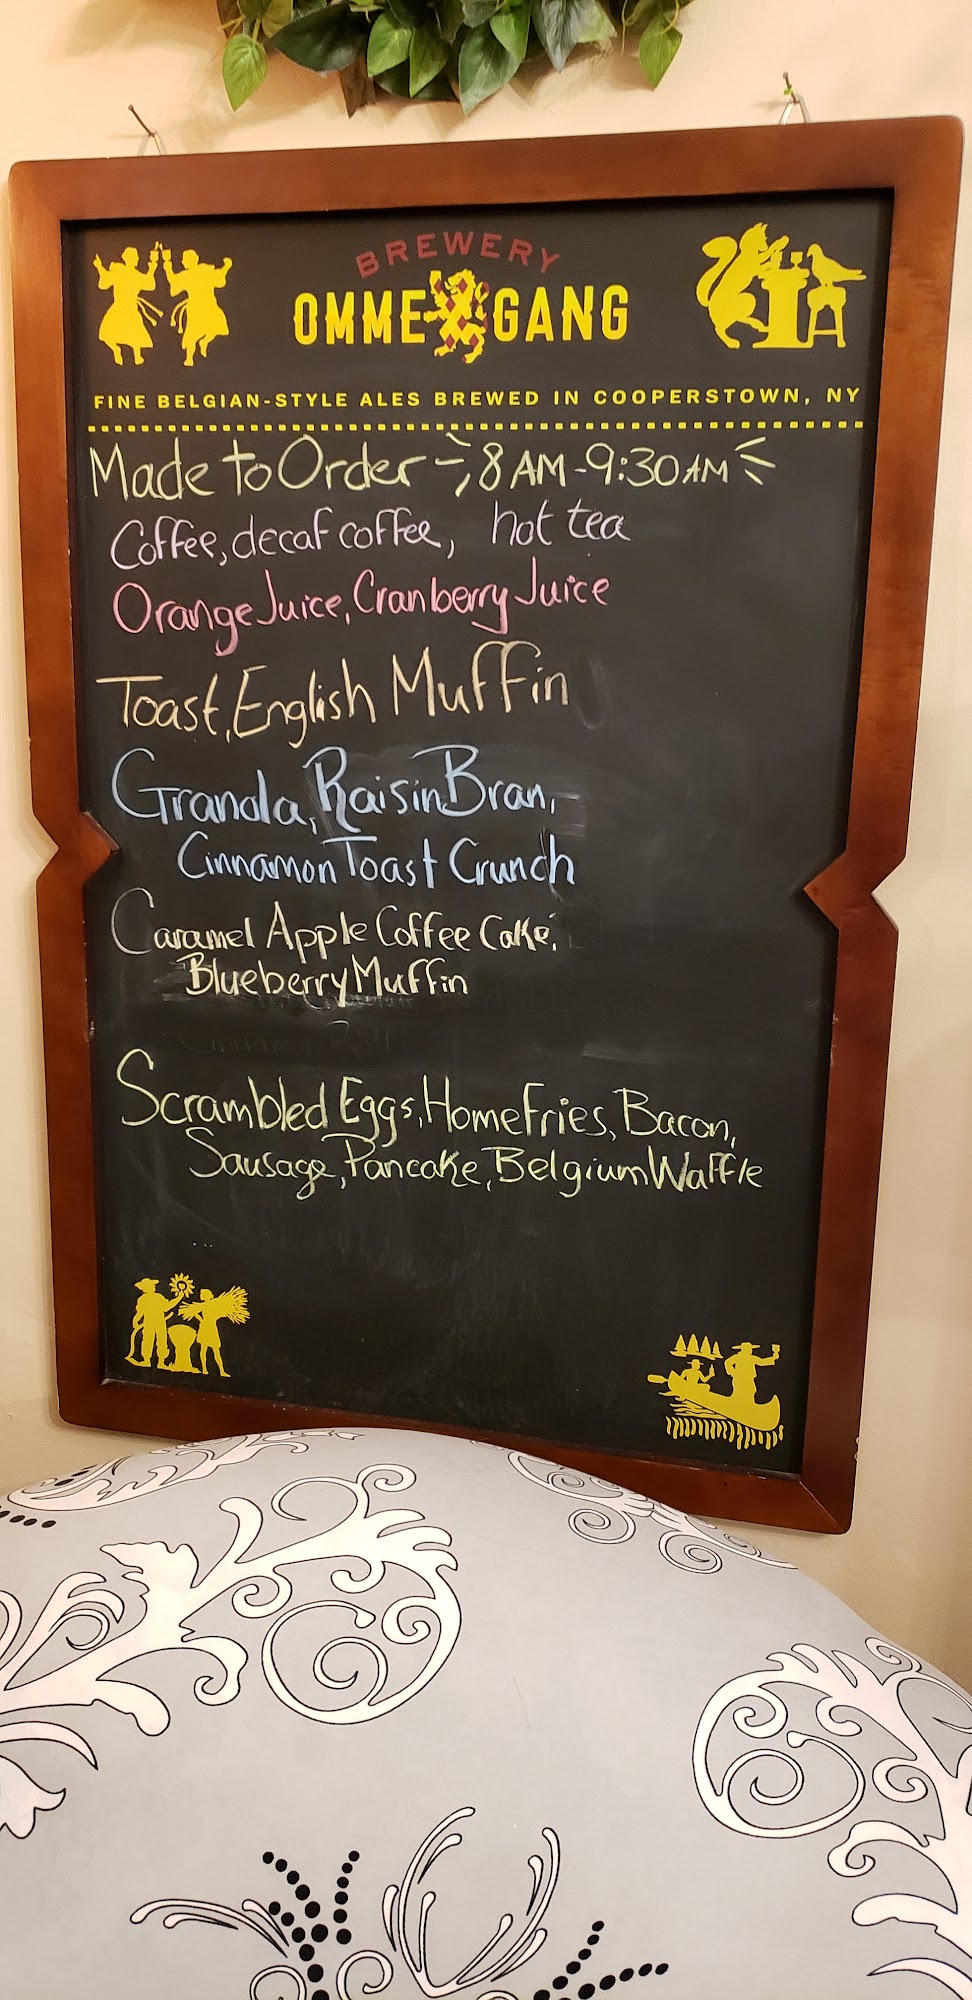 BREWERY
OMMEGANG
FINE BELGIAN-STYLE ALES BREWED IN COOPERSTOWN, NY
Made to Order - 8 AM-9:30AM
Coffee, decaf coffee, hot tea
Orange Juice, Cranberry Juice
Toast, English Muffin
Granola, Raisin Bran,
Cinnamon Toast Crunch
Caramel Apple Coffee Cake,
Blueberry Muffin
Chocolate
Cinnamon Roll
Scrambled Eggs, Home Fries, Bacon,
Sausage, Pancake, Belgium Waffle